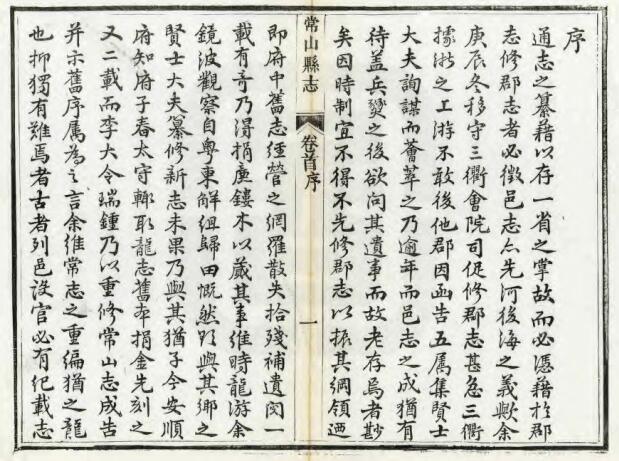 序
通志之纂藉以存一省之掌故而必憑藉於郡
志修郡志者必徵邑志亦先河後海之義歟余
庚辰冬移守三衢會院司促修郡志甚急三衢
據浙之上游不敢後他郡因函告五屬集賢士
大夫詢謀而薈萃之乃逾年而邑志之成猶有
待蓋兵燹之後欲问其遺事而故老存焉者尠
矣因時制宜不得不先修郡志以振其綱領迺
常山縣志
卷首序
一
即府中舊志經營之網羅散失拾殘補遺閱一
載有奇乃得捐廉鏤木以蕆其事維時龍游余
鏡波觀察自粤東解組歸田慨然欲與其鄉之
賢士大夫纂修新志未果乃與其猶子今安順
府知府子春太守輙取龍志舊本捐金先刻之
又二載而李大令瑞鍾乃以重修常山志成告
并示舊序属為之言余維常志之重編猶之龍
也抑獨有難焉者古者列邑設官必有紀載志